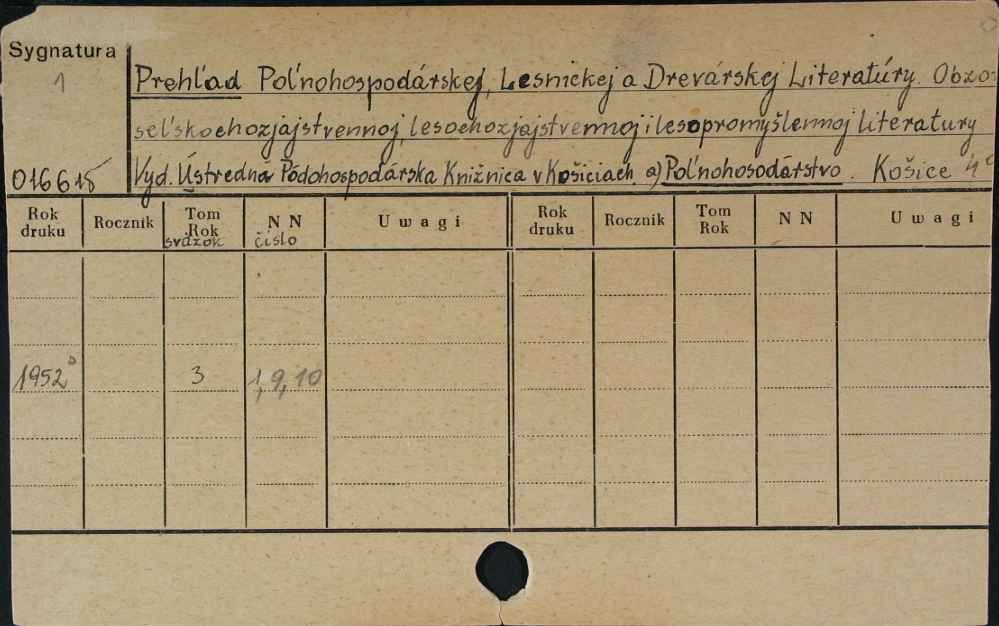 Sygnatura
1
Prehľad Poľnohospodárskej, Lesníckej a Drevárskej Literatúry. Obzor
seľskochozjajstvennoj, lesochozjajstvennoj i lesopromyšlennoj literatury
016615
Vyd. Ústredná Pôdohospodárska Knižnica v Košiciach. a) Poľnohosodárstvo. Košice 4°
Rok druku Rocznik Tom Rok N N Uwagi Rok druku Rocznik Tom Rok N N Uwagi
sväzok číslo
1952 3 1, 9, 10